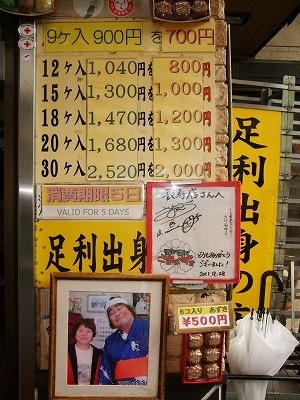 9ケ入 900円 を 700円
12ケ入 1,040円を 800円
15ケ入 1,300円を 1,000円
18ケ入 1,470円を 1,200円
20ケ入 1,680円を 1,300円
30ケ入 2,520円を 2,000円
消費期限5日
VALID FOR 5 DAYS
足利出身
足利出身の
2011.9.28
6コ入り あずき
￥500円